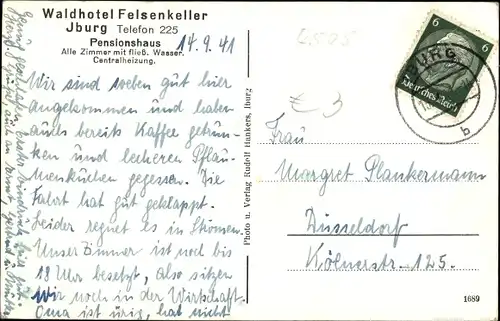 Waldhotel Felsenkeller
Jburg Telefon 225
Pensionshaus
Alle Zimmer mit fließ. Wasser.
Centralheizung.
14.9.41
Wir sind soeben gut hier
angekommen und haben
auch bereits Kaffee getrun-
ken und leckeren Pflau-
menkuchen gegessen. Die
Fahrt hat gut geklappt.
Leider regnet es in Strömen.
Unser Zimmer ist noch bis
18 Uhr besetzt, also sitzen
Wir noch in der Wirtschaft.
Oma ist urig, hat nicht
Photo u. Verlag Rudolf Hankers, Iburg
6 6
Deutsches Reich
BURG
b
Frau
Margret Plankermann
Düsseldorf
Kölnerstr. 125.
1689